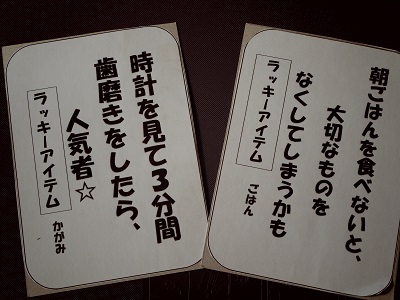 時計を見て3分間
歯磨きをしたら、
人気者☆
ラッキーアイテム
かがみ
朝ごはんを食べないと、
大切なものを
なくしてしまうかも
ラッキーアイテム
ごはん